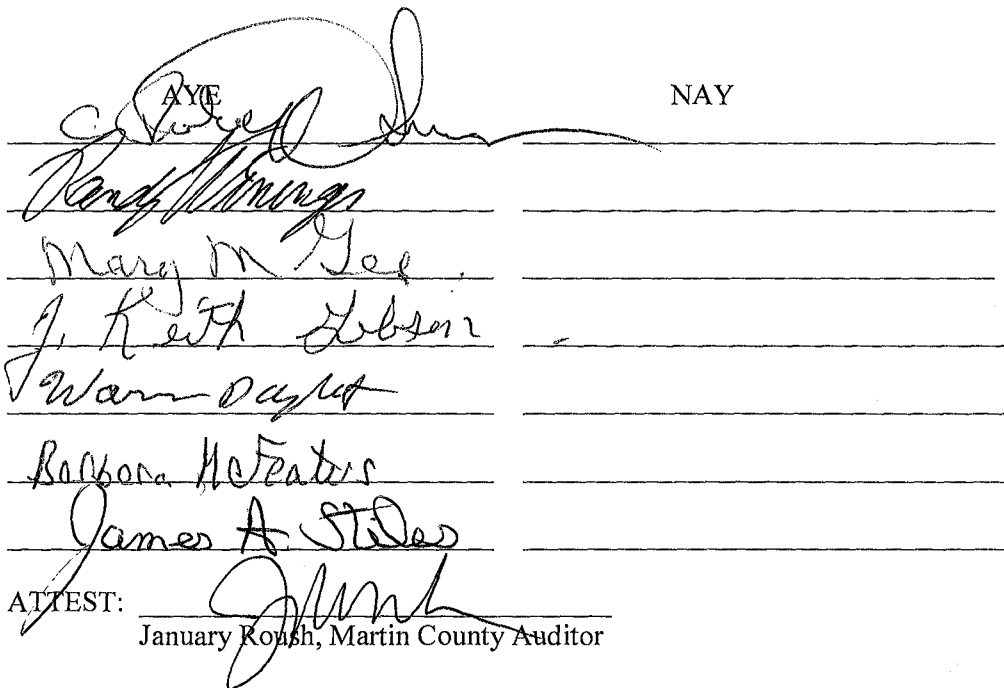 AYE NAY
Randy Winings
Mary M Gee
J. Keith Gibson
Barbara McFeaters
James A. Stiles
ATTEST:
January Roush, Martin County Auditor